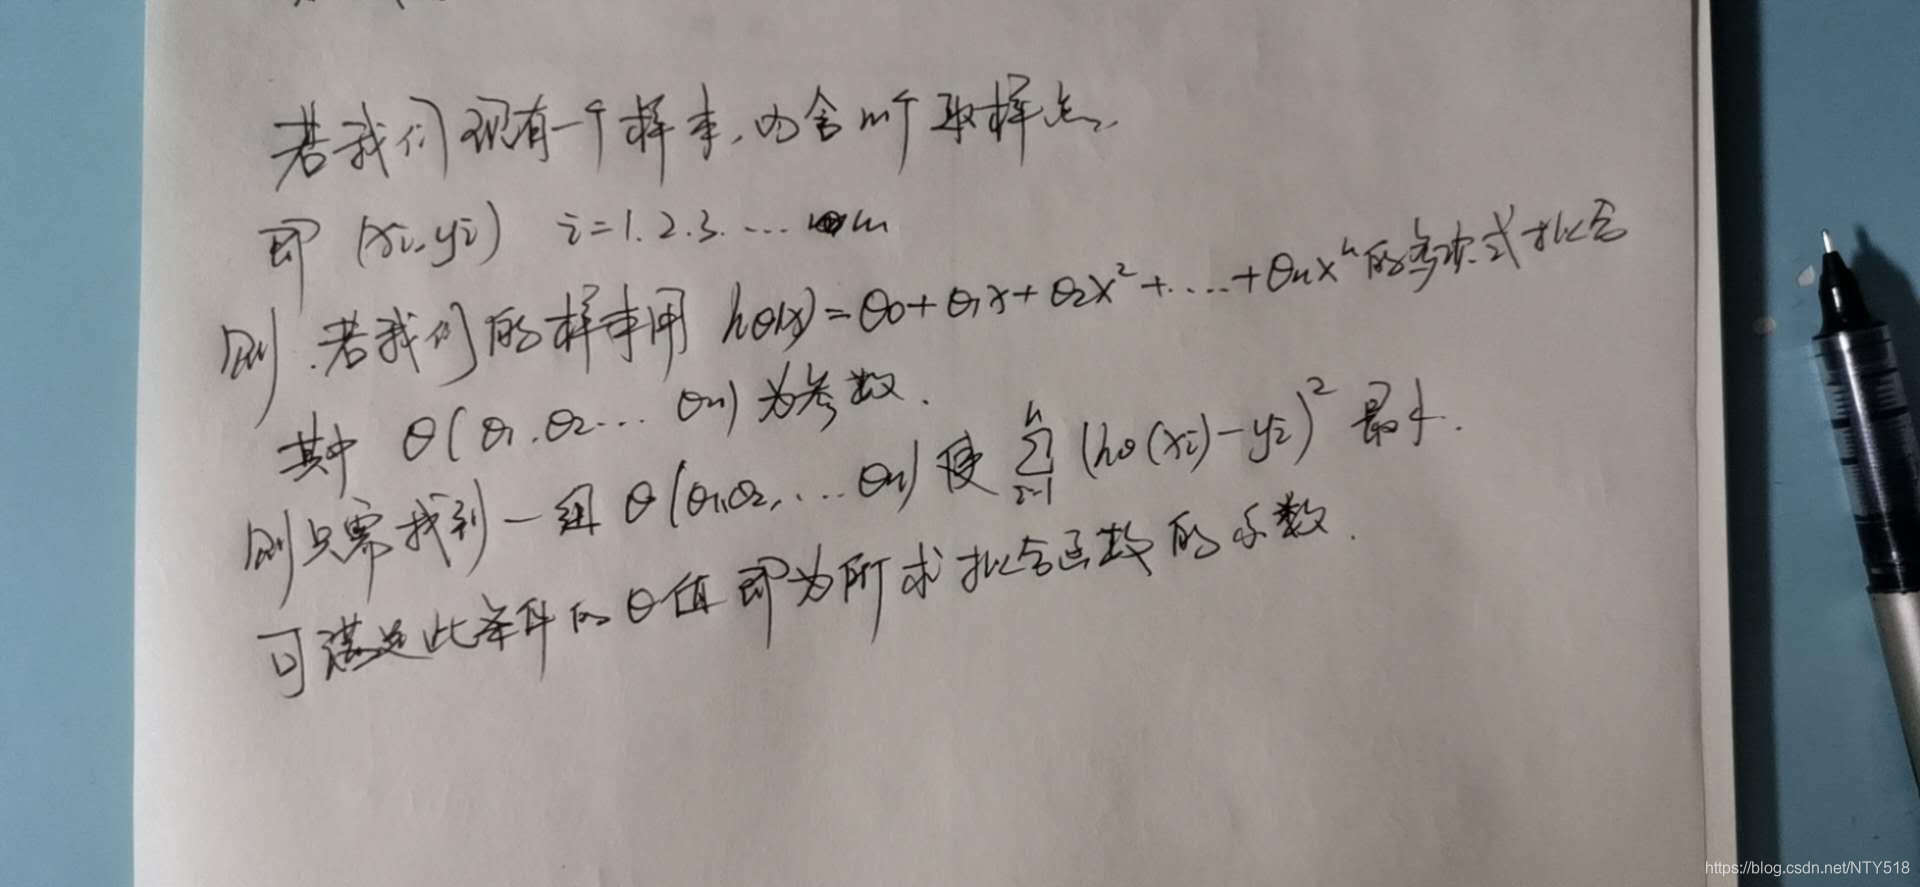 若我们现有一个样本,内含m个取样点,
即 (xi,yi) i=1.2.3.…m
则,若我们的样本用 hθ(x)=θ0+θ1x+θ2x²+…+θnxⁿ的多项式拟合
其中 θ(θ1,θ2…θn)为参数.
则只需找到一组θ(θ1,θ2,…θn)使 ∑ⁿᵢ₌₁ (hθ(xi)-yi)² 最小.
可满足此条件的θ值即为所求拟合函数的系数.
https://blog.csdn.net/NTY518